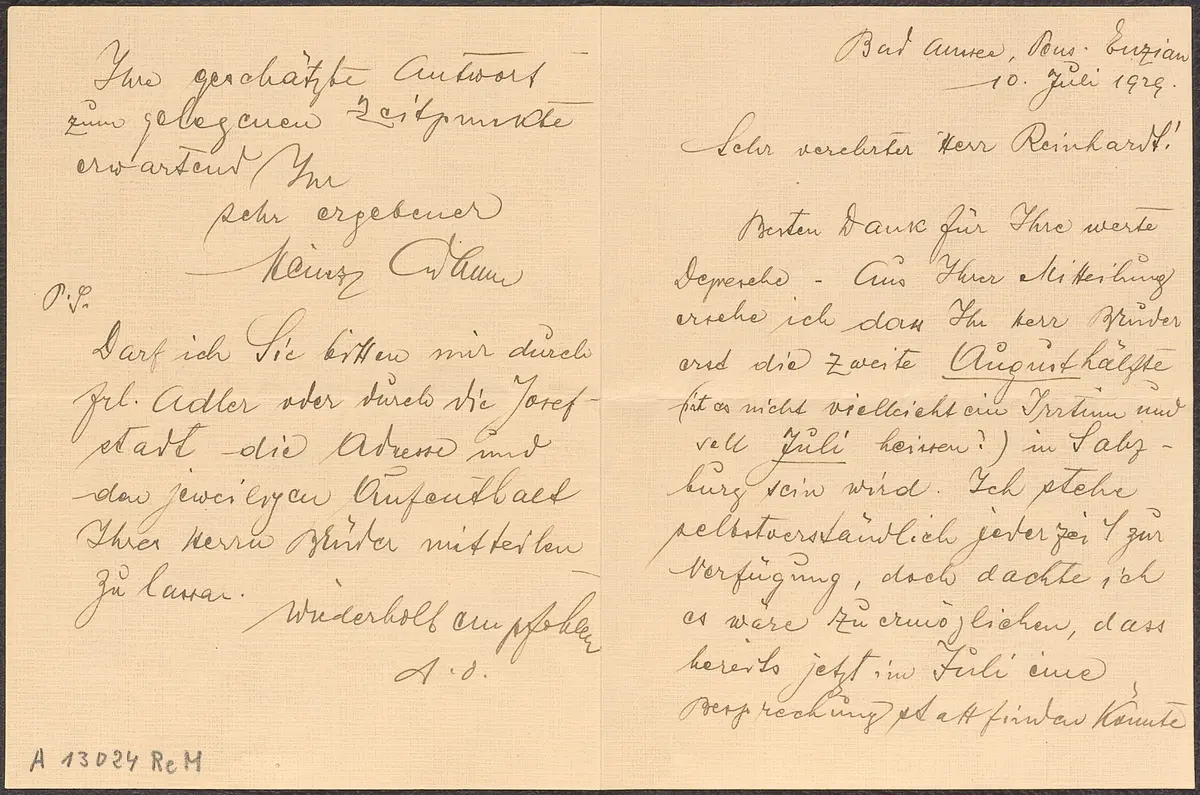 Bad Aussee, Pens. Enzian
10. Juli 1929.
Sehr verehrter Herr Reinhardt!
Besten Dank für Ihre werte
Depesche - Aus Ihrer Mitteilung
ersehe ich dass Ihr Herr Bruder
erst die zweite Augusthälfte
(ist es nicht vielleicht ein Irrtum und
soll Juli heissen?) in Salz-
burg sein wird. Ich stehe
selbstverständlich jederzeit zur
Verfügung, doch dachte ich
es wäre zu ermöglichen, dass
bereits jetzt im Juli eine
Besprechung stattfinden könnte
Ihre geschätzte Antwort
zum gelegenen Zeitpunkte
erwartend Ihr
sehr ergebener
Heinz
P.S.
Darf ich Sie bitten mir durch
Frl. Adler oder durch die Josef-
stadt die Adresse und
den jeweiligen Aufenthalt
Ihres Herrn Bruder mitteilen
zu lassen.
Wiederholt empfohlen
d.o.
A 13024 ReM